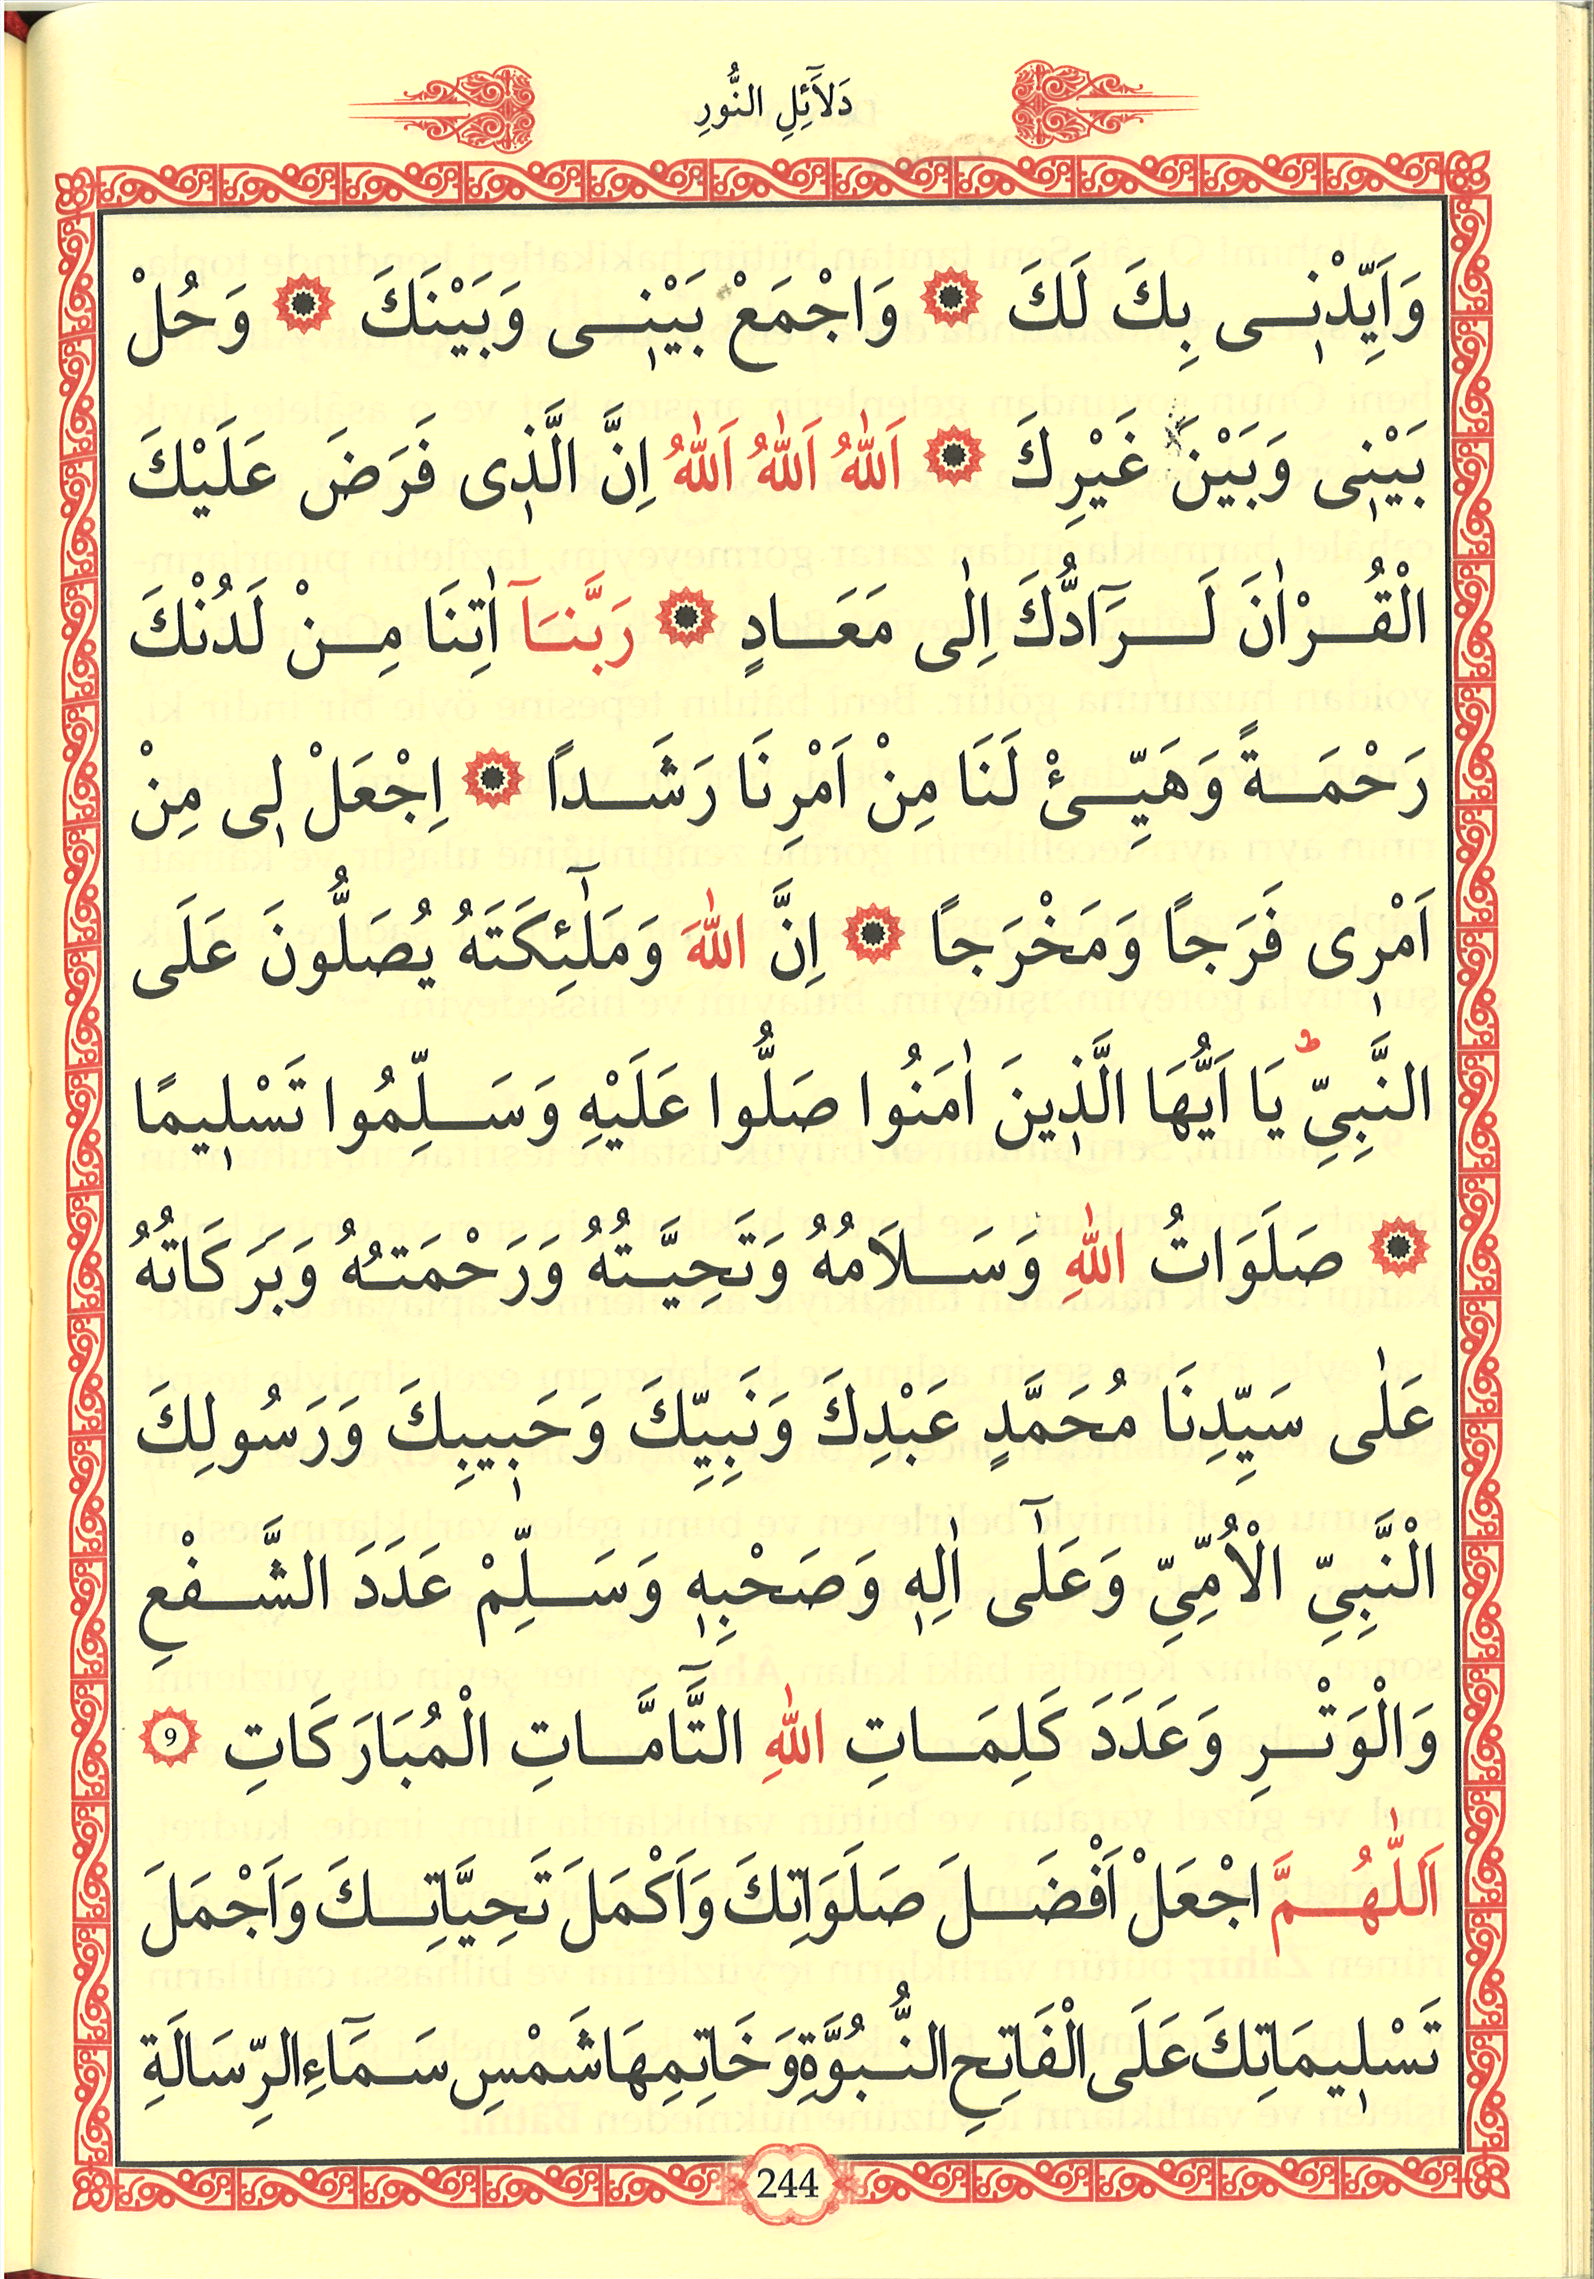 دَلَٓائِلِ النُّورِ
وَاَيِّدْنٖى بِكَ لَكَ ۞ وَاجْمَعْ بَيْنٖى وَبَيْنَكَ ۞ وَحُلْ
بَيْنٖى وَبَيْنَ غَيْرِكَ ۞ اَللّٰهُ اَللّٰهُ اَللّٰهُ اِنَّ الَّذٖى فَرَضَ عَلَيْكَ
الْقُرْاٰنَ لَرَٓادُّكَ اِلٰى مَعَادٍ ۞ رَبَّنَٓا اٰتِنَا مِنْ لَدُنْكَ
رَحْمَةً وَهَيِّئْ لَنَا مِنْ اَمْرِنَا رَشَداً ۞ اِجْعَلْ لٖى مِنْ
اَمْرٖى فَرَجاً وَمَخْرَجاً ۞ اِنَّ اللّٰهَ وَمَلٰٓئِكَتَهُ يُصَلُّونَ عَلَى
النَّبِيِّ ؕ يَا اَيُّهَا الَّذٖينَ اٰمَنُوا صَلُّوا عَلَيْهِ وَسَلِّمُوا تَسْلٖيمًا
۞ صَلَوَاتُ اللّٰهِ وَسَلَامُهُ وَتَحِيَّتُهُ وَرَحْمَتُهُ وَبَرَكَاتُهُ
عَلٰى سَيِّدِنَا مُحَمَّدٍ عَبْدِكَ وَنَبِيِّكَ وَحَبٖيبِكَ وَرَسُولِكَ
الْنَّبِيِّ الْاُمِّيِّ وَعَلٰٓى اٰلِهٖ وَصَحْبِهٖ وَسَلِّمْ عَدَدَ الشَّفْعِ
وَالْوَتْرِ وَعَدَدَ كَلِمَاتِ اللّٰهِ التَّٓامَّاتِ الْمُبَارَكَاتِ 9
اَللّٰهُمَّ اجْعَلْ اَفْضَلَ صَلَوَاتِكَ وَاَكْمَلَ تَحِيَّاتِكَ وَاَجْمَلَ
تَسْلٖيمَاتِكَ عَلَى الْفَاتِحِ النُّبُوَّةِ وَخَاتِمِهَا شَمْسِ سَمَٓاءِ الرِّسَالَةِ
244